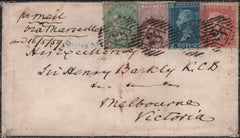 per mail
via Marseilles
His Excellency
Sir Henry Barkly K.C.B
Melbourne
Victoria